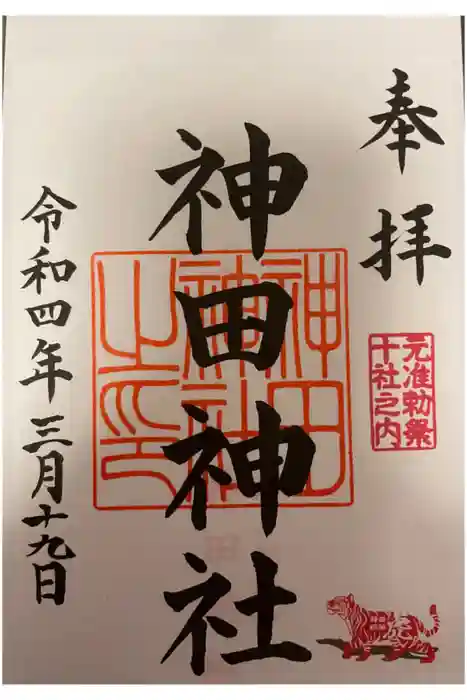 奉拝
元准勅祭
十社之内
神田神社
神田
神社
之印
令和四年三月十九日